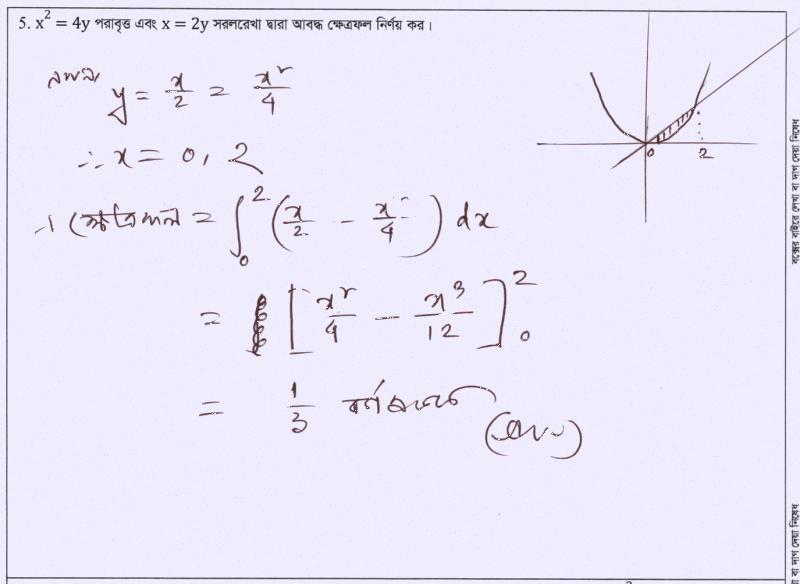 5. x² = 4y পরাবৃত্ত এবং x = 2y সরলরেখা দ্বারা আবদ্ধ ক্ষেত্রফল নির্ণয় কর।
y = x/2 = x²/4
∴ x = 0, 2
∴ ক্ষেত্রফল = ∫₀² (x/2 − x²/4) dx
= [x²/4 − x³/12]₀²
= 1/3 বর্গ একক (Ans)
0 2
বক্সের বাইরে লেখা বা দাগ দেয়া নিষেধ
বা দাগ দেয়া নিষেধ